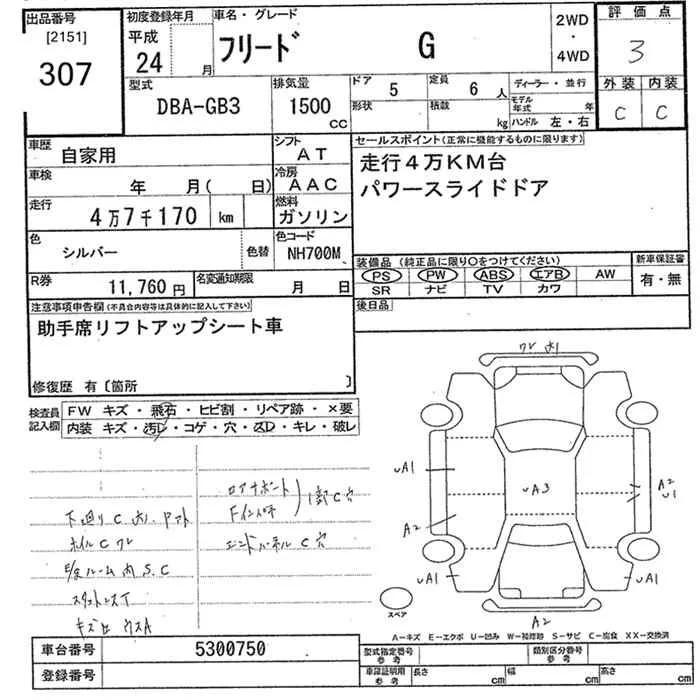 出品番号
[2151]
307
初度登録年月
平成
24 月
車名・グレード
フリード G
2WD
・
4WD
評価点
3
外装 内装
C C
型式
DBA-GB3
排気量
1500
CC
ドア 5
定員 6 人
形状
積載 kg
ディーラー・並行
モデル年式 年
ハンドル 左・右
車歴
自家用
シフト
AT
車検
年 月( 日)
冷房
AAC
走行
4万7千170 km
燃料
ガソリン
色
シルバー
色替
色コード
NH700M
R券
11,760円
名変通知期限
月 日
セールスポイント(正常に機能するものに限ります)
走行4万KM台
パワースライドドア
装備品 (純正品に限り〇をつけてください)
PS PW ABS エアB AW
SR ナビ TV カワ
新車保証書
有・無
後日品
注意事項申告欄(不具合内容等は具体的に記入して下さい)
助手席リフトアップシート車
修復歴 有〔箇所 〕
検査員
記入欄
FW キズ・飛石・ヒビ割・リペア跡・×要
内装 キズ・汚レ・コゲ・穴・スレ・キレ・破レ
下廻り C
ホイルC
ルーム内 S.C
キズ
C穴
C穴
ワレ
UA1
A2
UA3
A2
U1
UA1
UA1
A2
スペア
A-キズ E-エクボ U-凹み W-補修跡 S-サビ C-腐食 XX-交換済
車台番号
5300750
登録番号
型式指定番号
参考
類別区分番号
参考
車庫証明用
参考
長さ cm
幅 cm
高さ cm